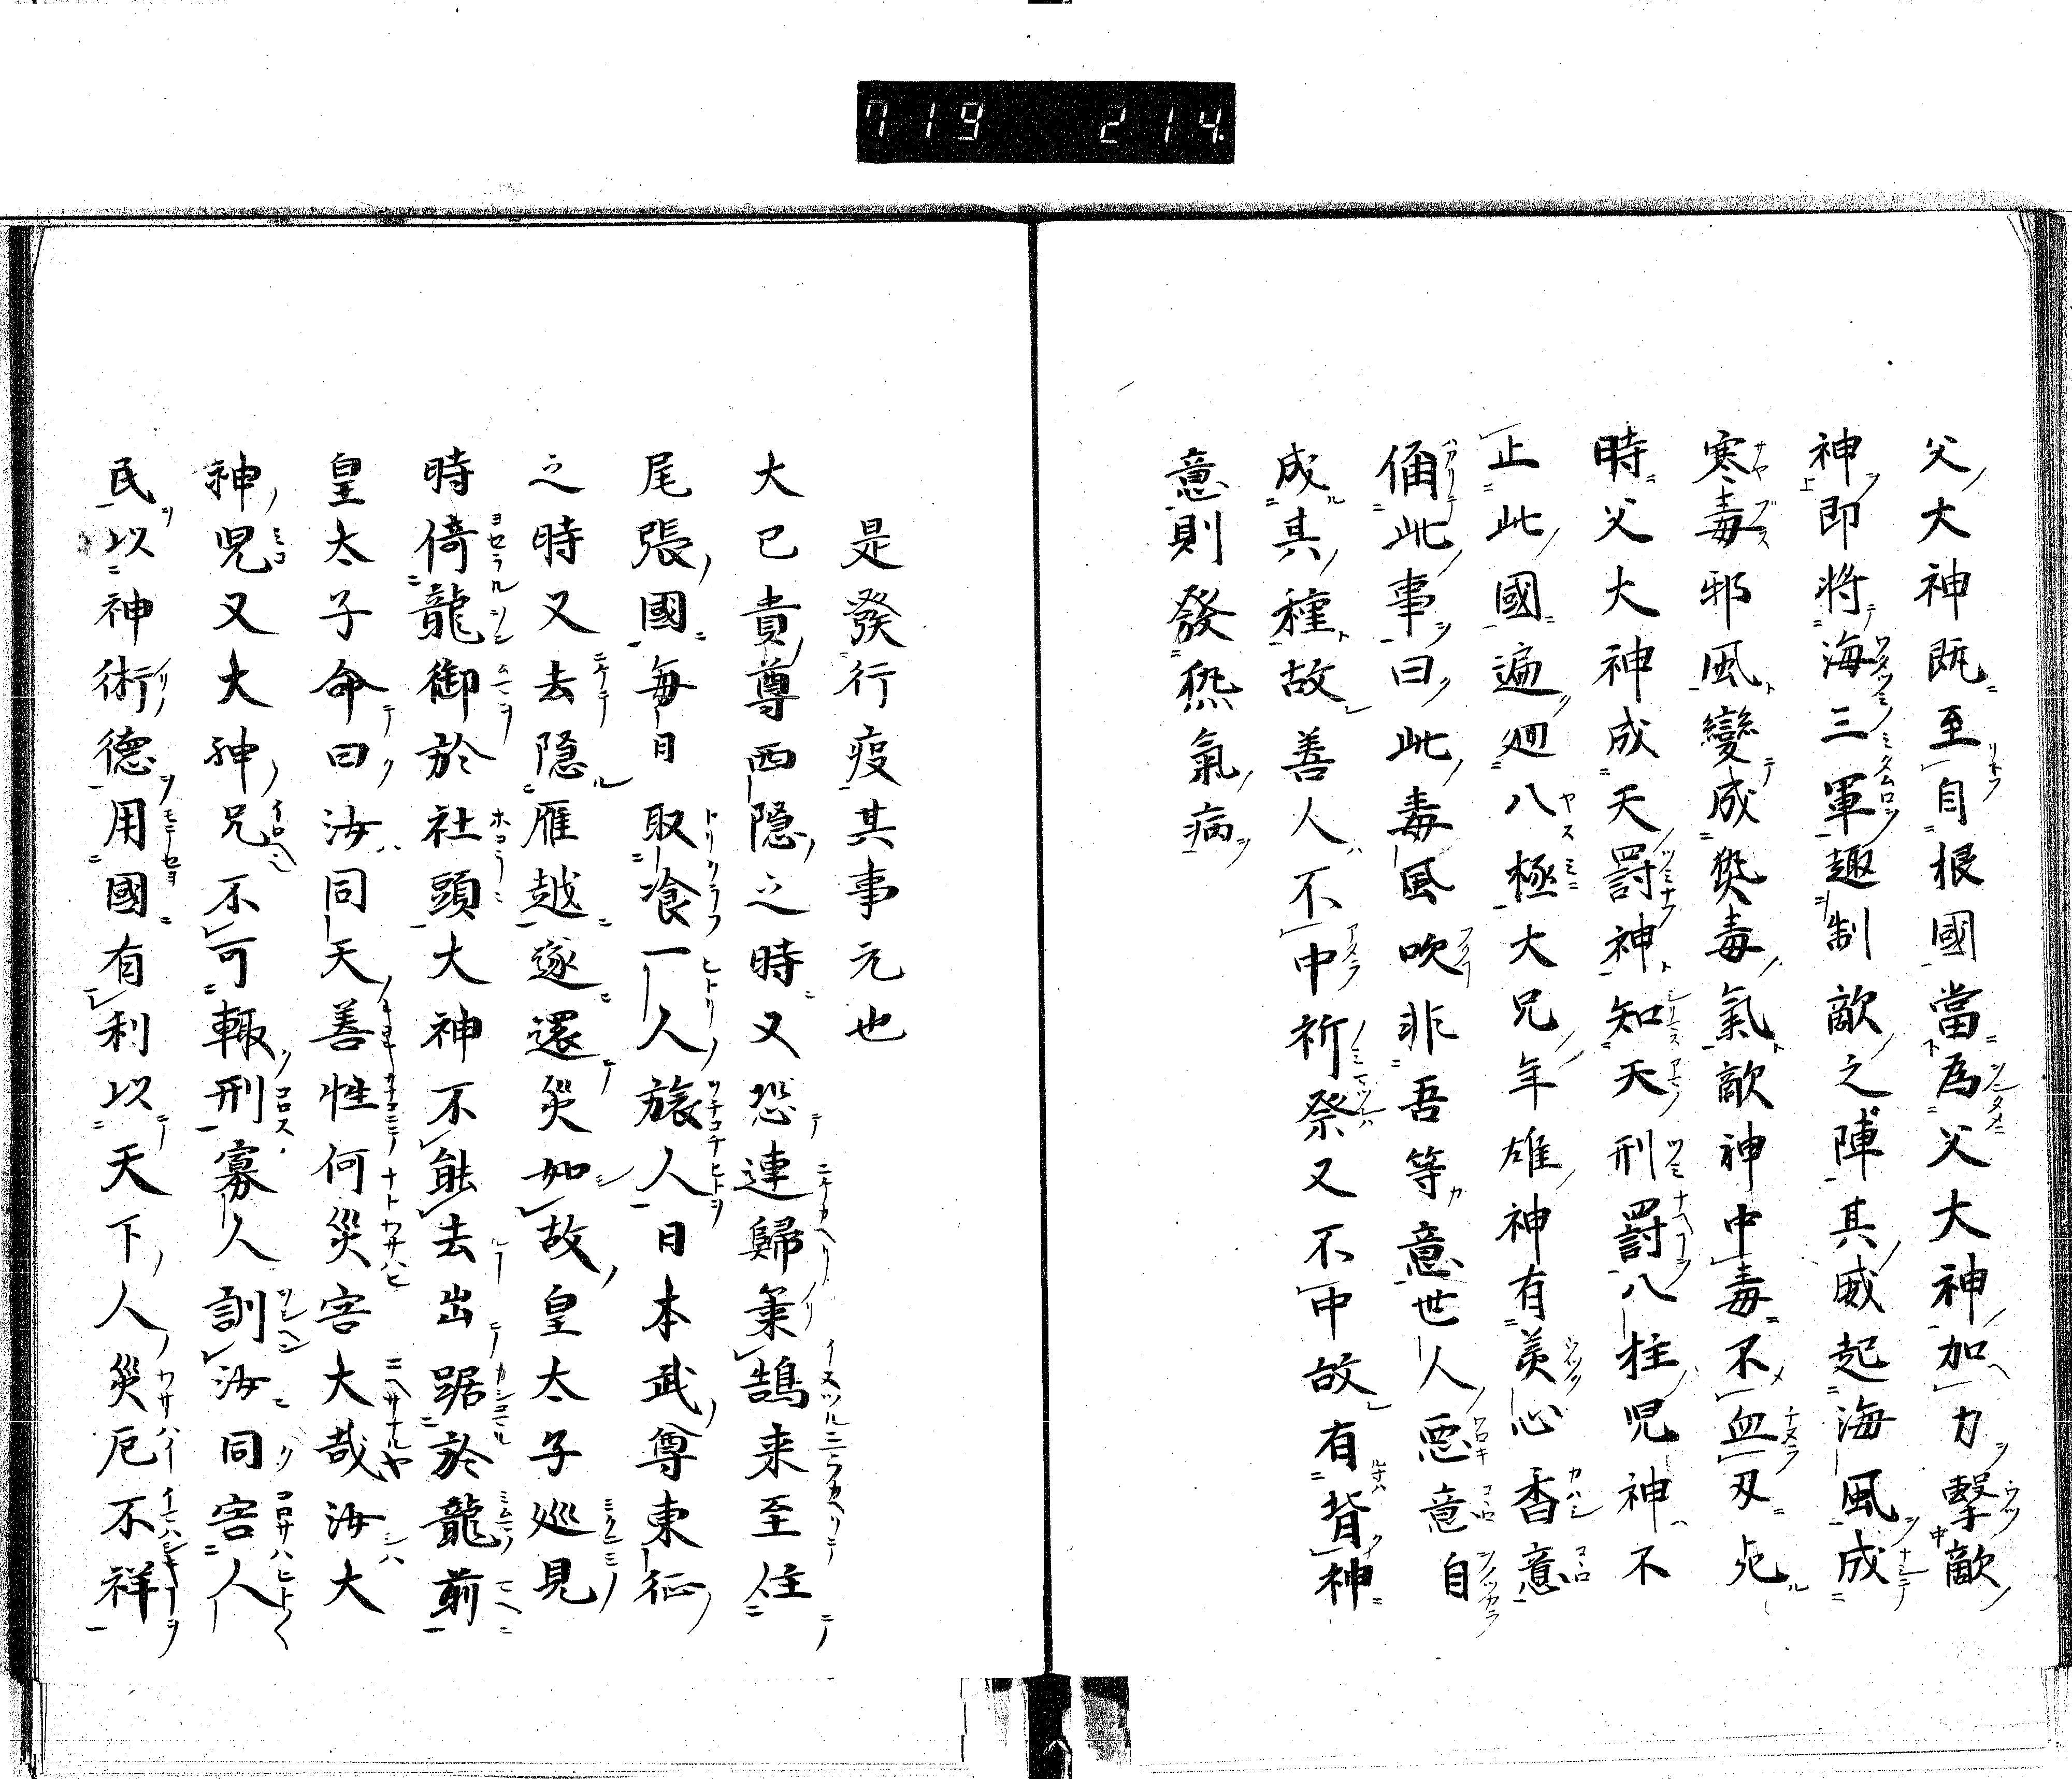 719 214
父大神既至自根國當為父大神加力擊敵
神即將海三軍趣制敵之陣其威起海風成
寒毒邪風變成熱毒氣敵神中毒不血刃死
時父大神成天罰神知天刑罰八柱児神不
止此國遍廻八極大兄年雄神有美心香意
俑此事曰此毒風吹非吾等意世人惡意自
成其種故善人不中祈祭又不中故有背神
意則發熱氣病
是發行疫其事元也
大已貴尊西隱之時又恐連歸巣鵠来至住
尾張國每日取飡一人旅人日本武尊東征
之時又去隱雁越逐還災如故皇太子巡見
時倚龍御於社頭大神不能去出踞於龍前
皇太子命曰汝同天善性何災害大哉汝大
神児又大神兄不可輙刑寡人訓汝同害人
民以神術德用國有利以天下人災厄不祥